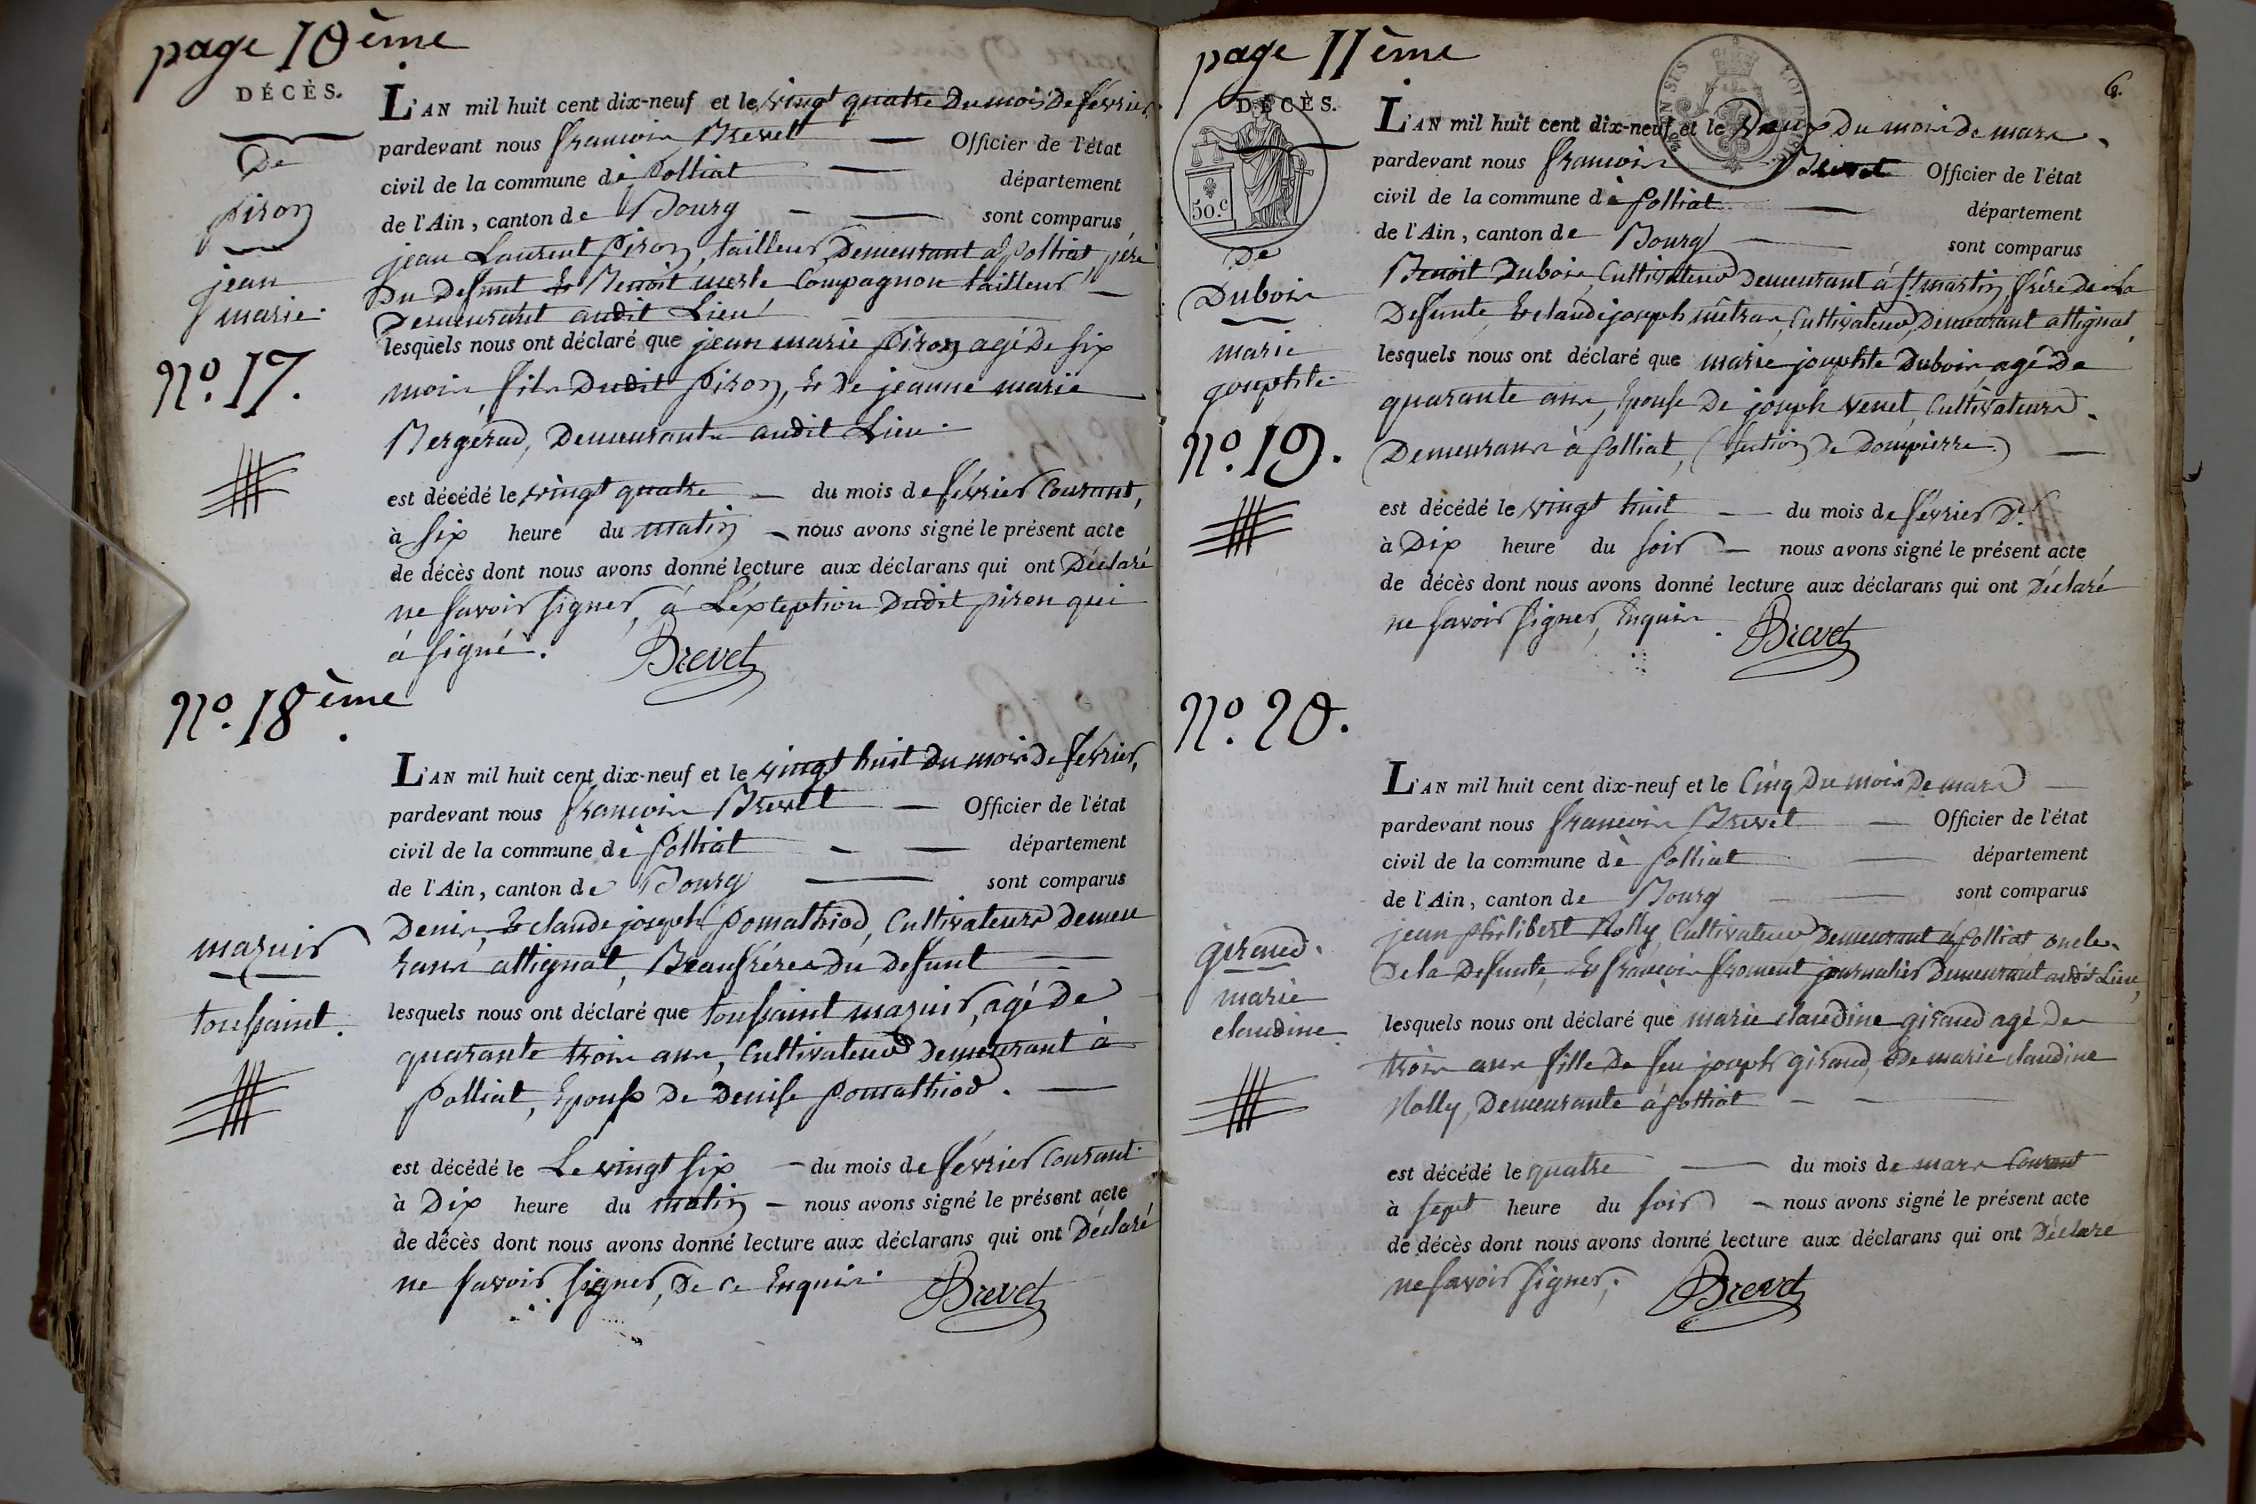 page 10ème
DÉCÈS.
De
piron
jean
marie.
N.o 17.
L'AN mil huit cent dix-neuf et le vingt quatre Du mois De février,
pardevant nous francois Brevet — Officier de l'état
civil de la commune de Polliat — département
de l'Ain, canton de Bourg — sont comparus
jean Laurent Piron, tailleur, Demeurant à Polliat, père
Du Defunt Et Benoit merle Compagnon tailleur
Demeurant audit Lieu
lesquels nous ont déclaré que jean marie piron agé De six
mois, fils Dudit Piron, Et De jeanne marie
Bergérad, Demeurants audit Lieu.
est décédé le vingt quatre — du mois de février Courant,
à six heure du matin — nous avons signé le présent acte
de décès dont nous avons donné lecture aux déclarans qui ont Déclaré
ne savoir signer, à L'éxception Dudit piron qui
à signé. Brevet
N.o 18ème
mazuir
toussaint.
L'AN mil huit cent dix-neuf et le vingt huit Du mois De fevrier,
pardevant nous francois Brevet — Officier de l'état
civil de la commune de Polliat — département
de l'Ain, canton de Bourg — sont comparus
Denis, Et claude joseph Pomathiod, Cultivateurs Demeu
rans attignat, Beaufréres Du Defunt
lesquels nous ont déclaré que toussaint mazuir, agé De
quarante trois ans, Cultivateur Demeurant à
Polliat, Epoux De Denise Pomathiod.
est décédé le Le vingt six — du mois de février Courant
à Dix heure du matin — nous avons signé le présent acte
de décès dont nous avons donné lecture aux déclarans qui ont Déclaré
ne savoir signer, De ce Enquis. Brevet
page 11ème
6.
DÉCÈS.
50.c
De
Dubois
marie
josephte
N.o 19.
L'AN mil huit cent dix-neuf et le Deux Du mois de mars
pardevant nous francois Brevet Officier de l'état
civil de la commune de Polliat — département
de l'Ain, canton de Bourg — sont comparus
Benoit Dubois, Cultivateur Demeurant à st martin, frére De la
Defunte, Et claude joseph mîtras, Cultivateur, Demeurant attignat,
lesquels nous ont déclaré que marie josephte Dubois agé De
quarante ans, Epouse De joseph Venet, Cultivateurs
Demeurans à Polliat, (section De Dompierre)
est décédé le vingt huit — du mois de février Der
à Dix heure du soir — nous avons signé le présent acte
de décès dont nous avons donné lecture aux déclarans qui ont Déclaré
ne savoir signer, Enquis. Brevet
N.o 20.
giraud.
marie
claudine
L'AN mil huit cent dix-neuf et le Cinq Du mois De mars
pardevant nous francois Brevet — Officier de l'état
civil de la commune de Polliat — département
de l'Ain, canton de Bourg — sont comparus
jean philibert Nolly, Cultivateur Demeurant à Polliat oncle
De la Defunte, Et francois froment journalier Demeurant audit Lieu,
lesquels nous ont déclaré que marie claudine giraud agé De
trois ans fille De feu joseph giraud, & De marie claudine
Nolly, Demeurante à Polliat
est décédé le quatre — du mois de mars Courant
à sept heure du soir — nous avons signé le présent acte
de décès dont nous avons donné lecture aux déclarans qui ont Déclaré
ne savoir signer. Brevet